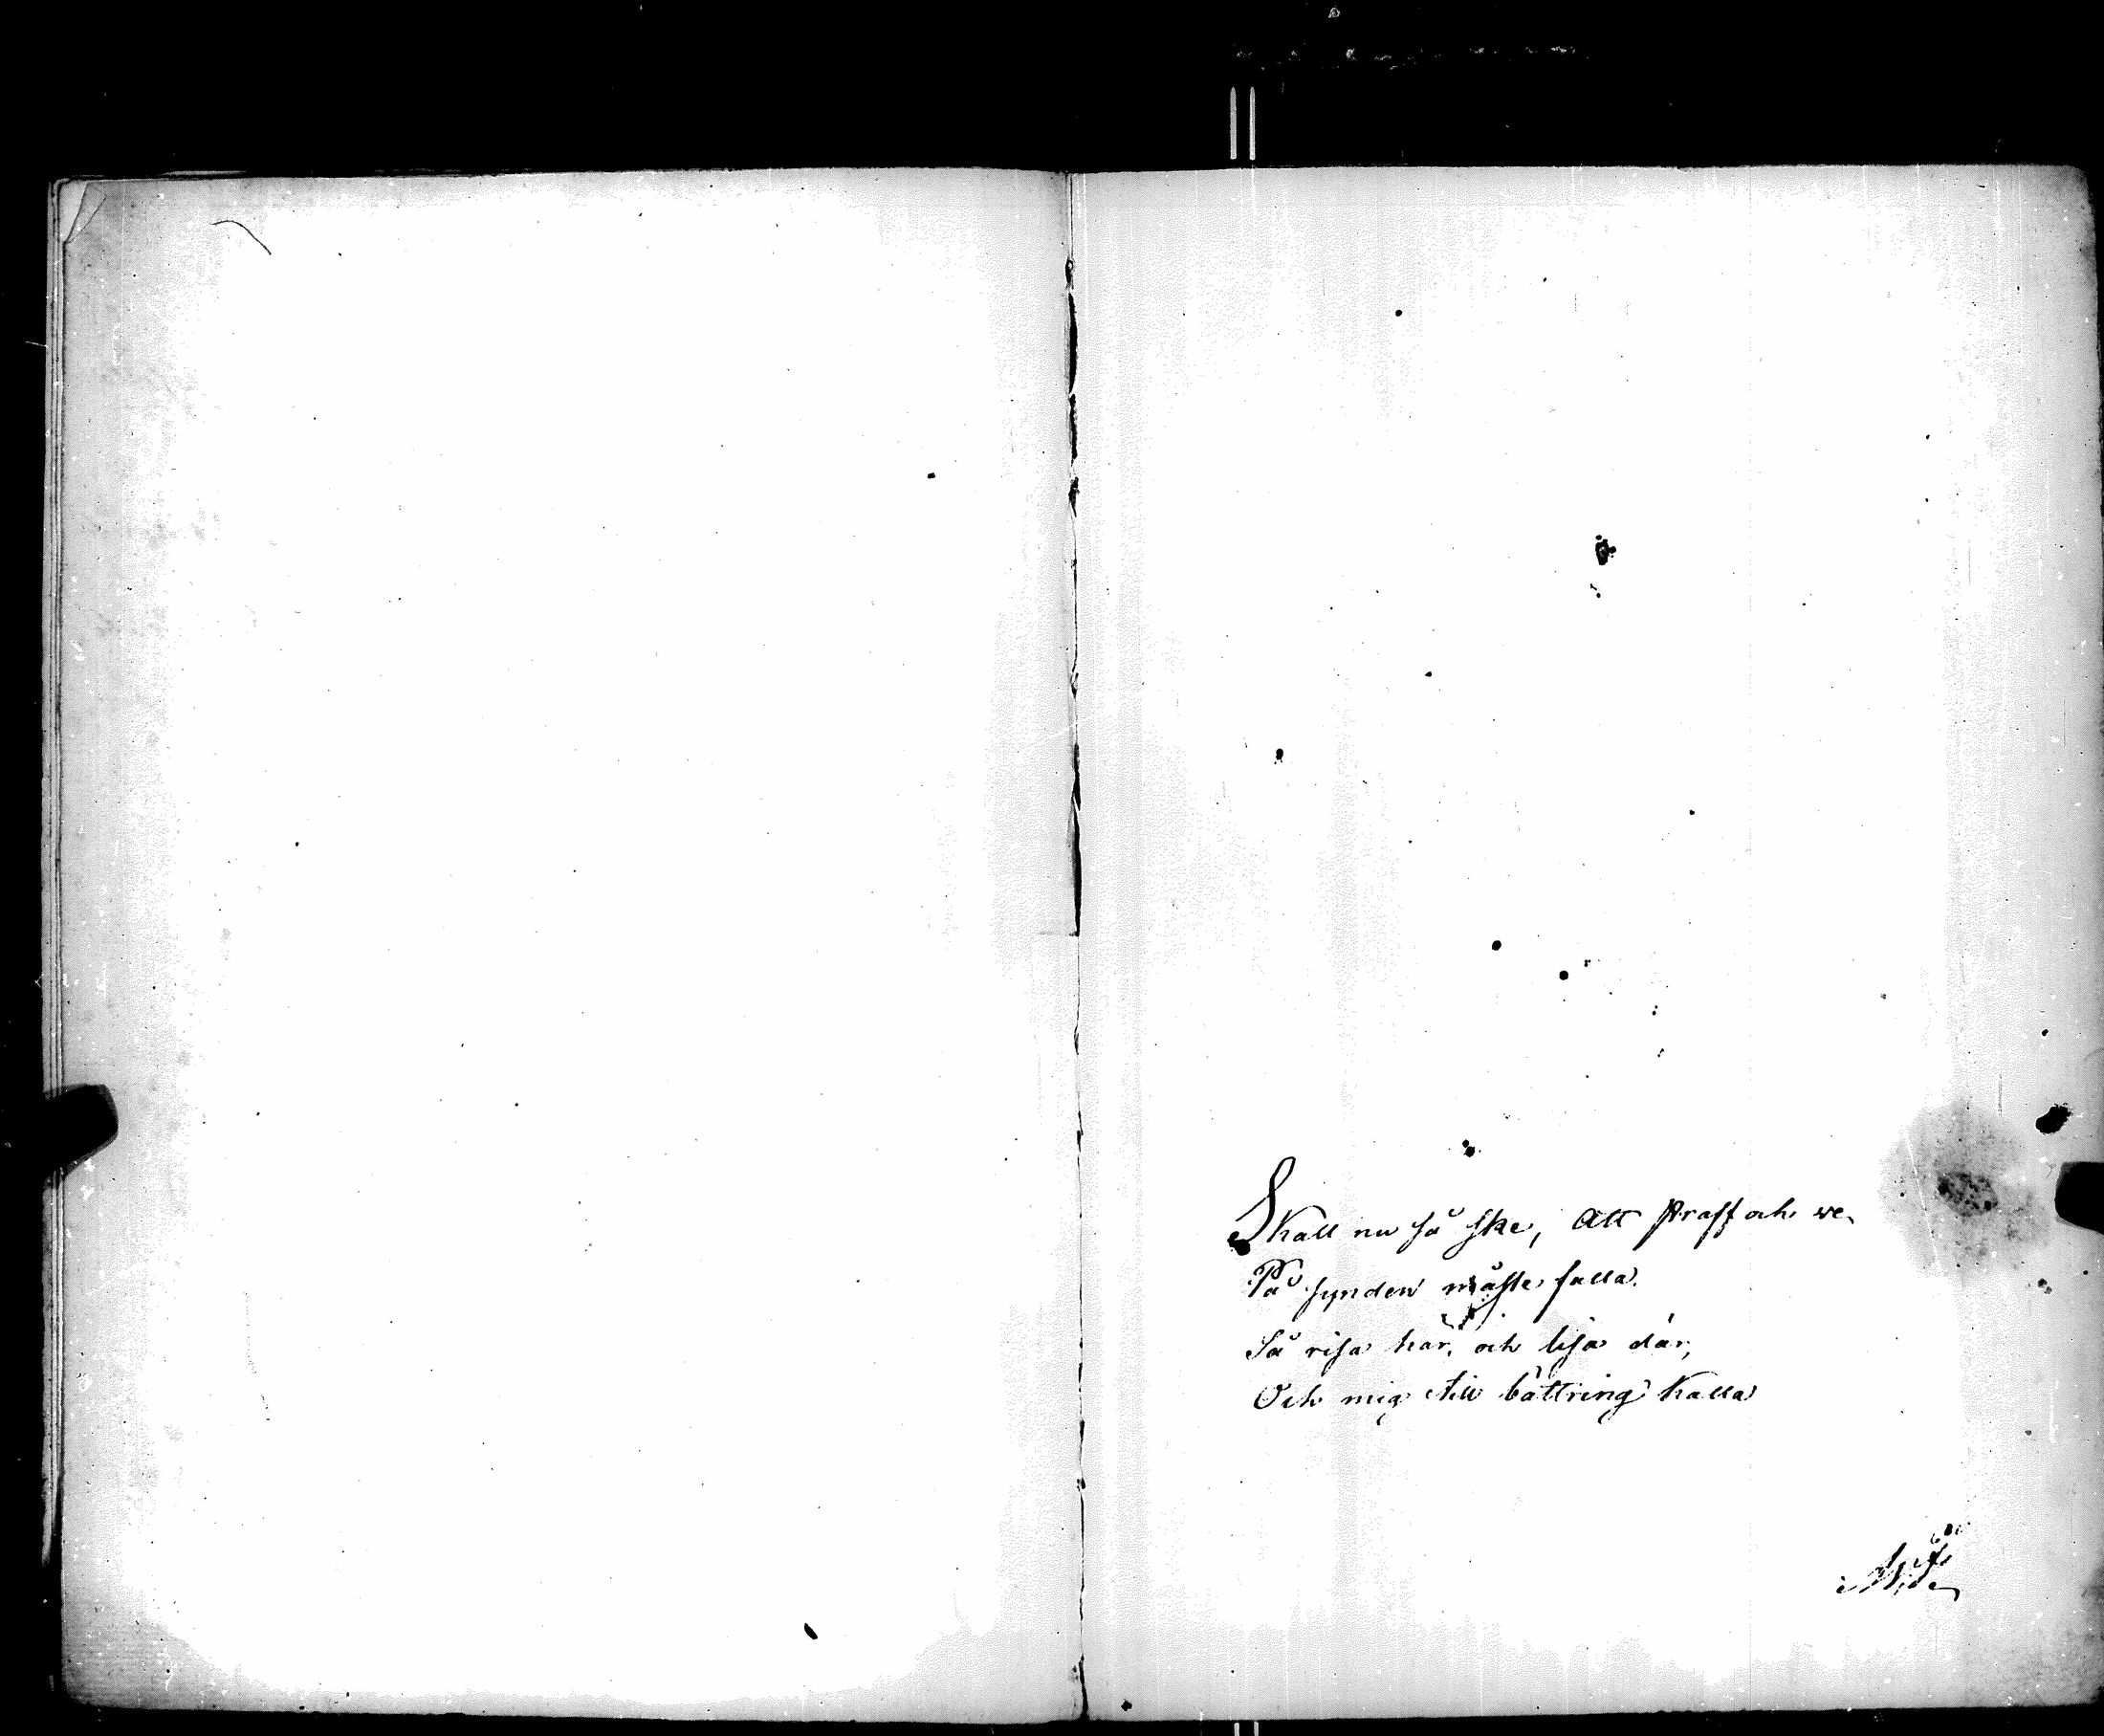 Skall nu så ske, att straff och we
På synden måste falla.
Så risa här, och lisa där,
Och mig till bättring kalla